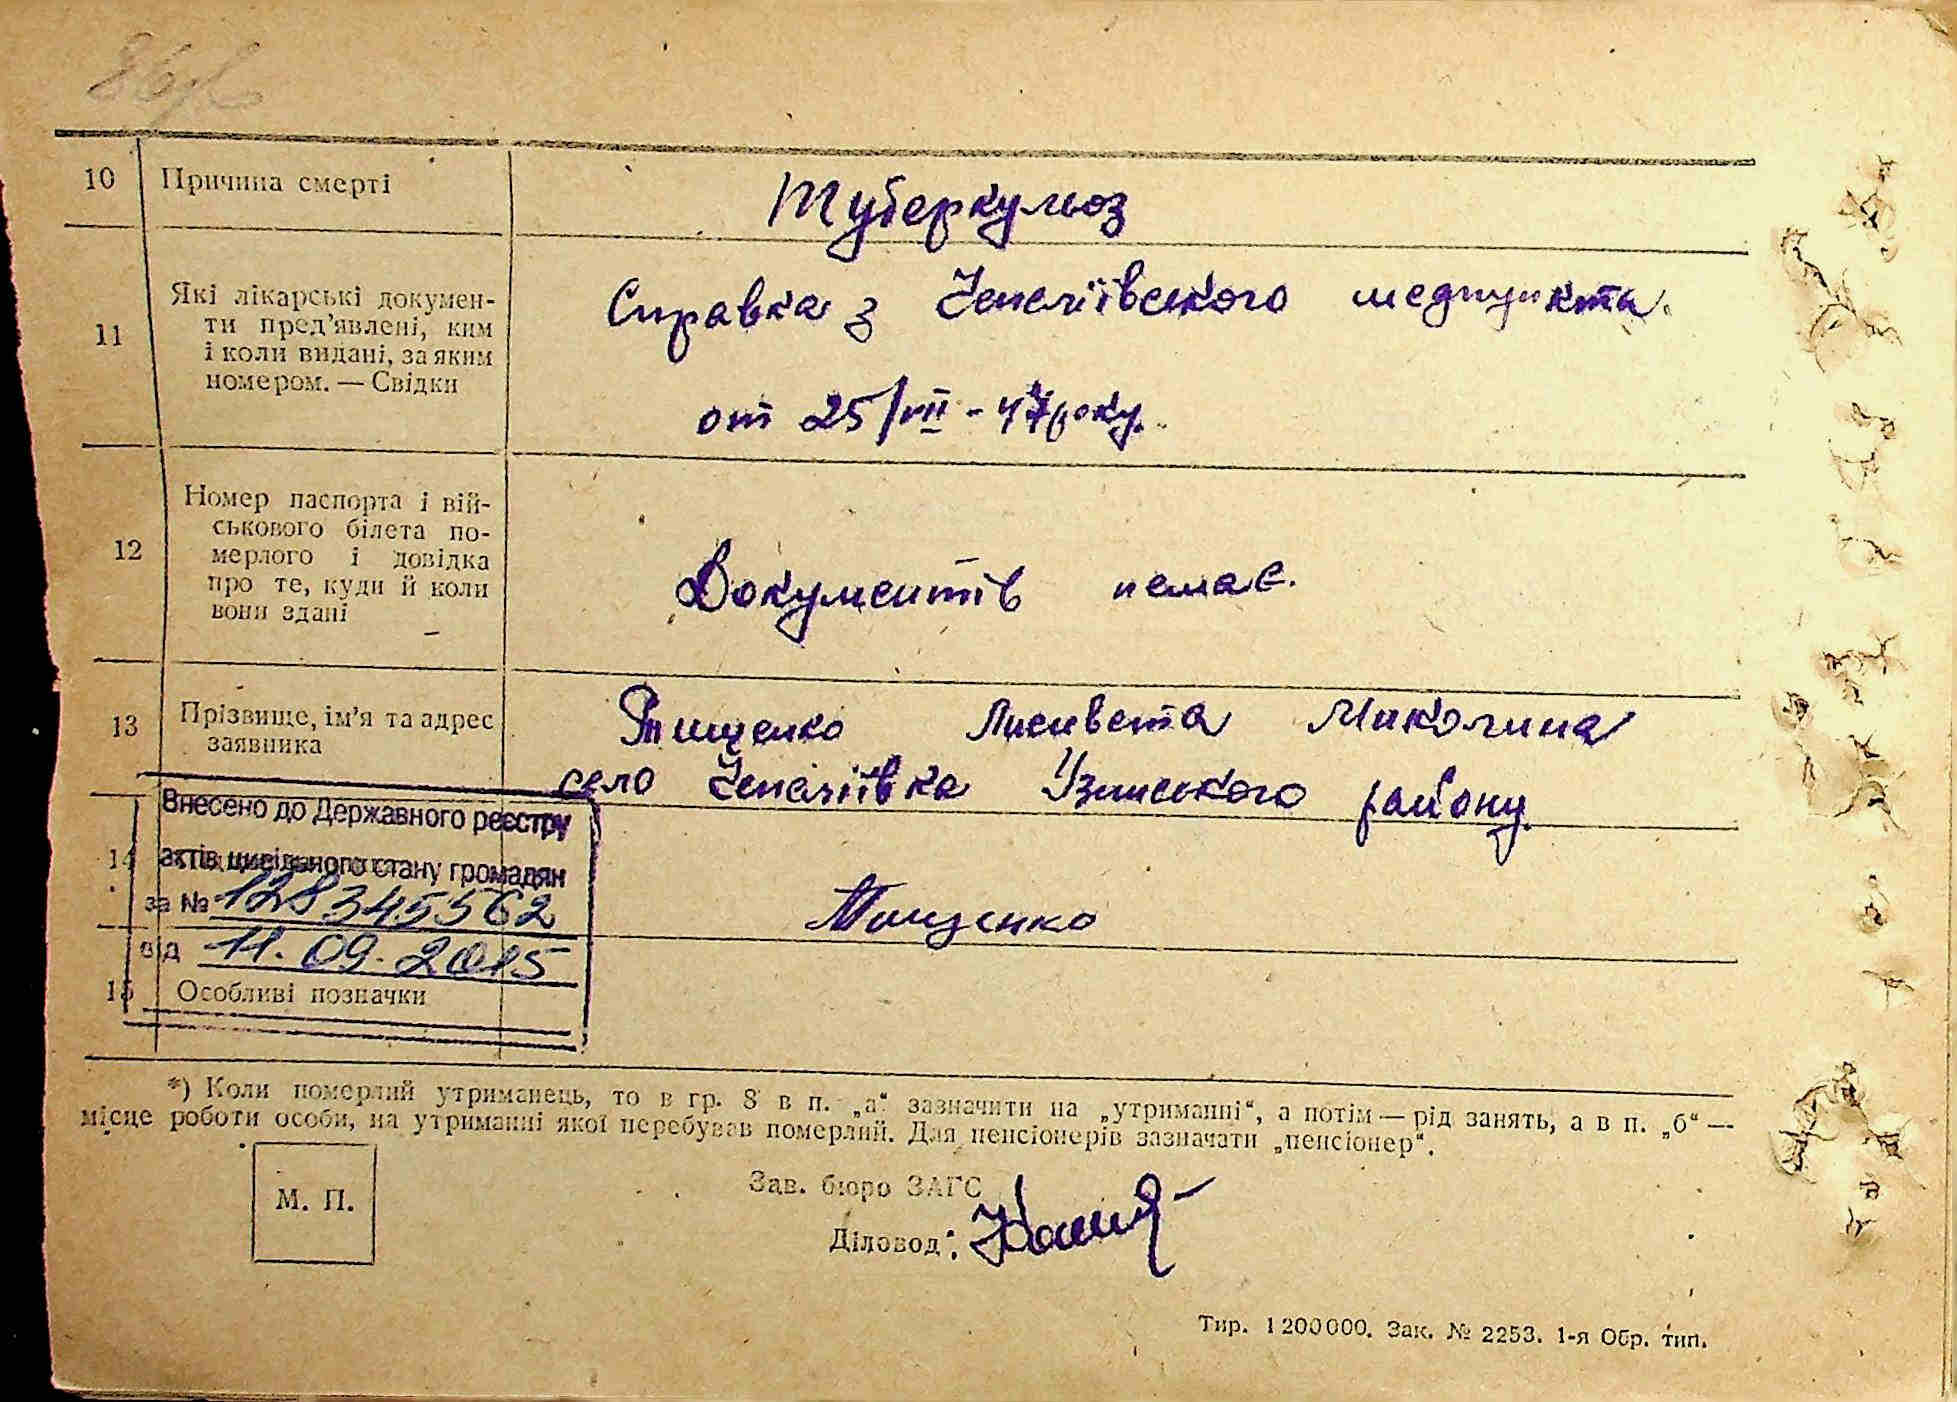 10 Причина смерті
Туберкульоз
11 Які лікарські докумен-
ти пред'явлені, ким
і коли видані, за яким
номером. — Свідки
Справка з Чепеліївского медпункта.
от 25/VII - 47 року.
12 Номер паспорта і вій-
ськового білета по-
мерлого і довідка
про те, куди й коли
вони здані
Документів немає.
13 Прізвище, ім'я та адрес
заявника
Тищенко Лисивета Миколина
село Чепеліївка Узинського району
14
Тищенко
Внесено до Державного реєстру
актів цивільного стану громадян
за № 1283455562
від 11.09.2015
15 Особливі позначки
*) Коли померлий утриманець, то в гр. 8 в п. „а“ зазначити на „утриманні“, а потім — рід занять, а в п. „б“ —
місце роботи особи, на утриманні якої перебував померлий. Для пенсіонерів зазначати „пенсіонер“.
М. П.
Зав. бюро ЗАГС
Діловод:
Тир. 1200000. Зак. № 2253. 1-я Обр. тип.